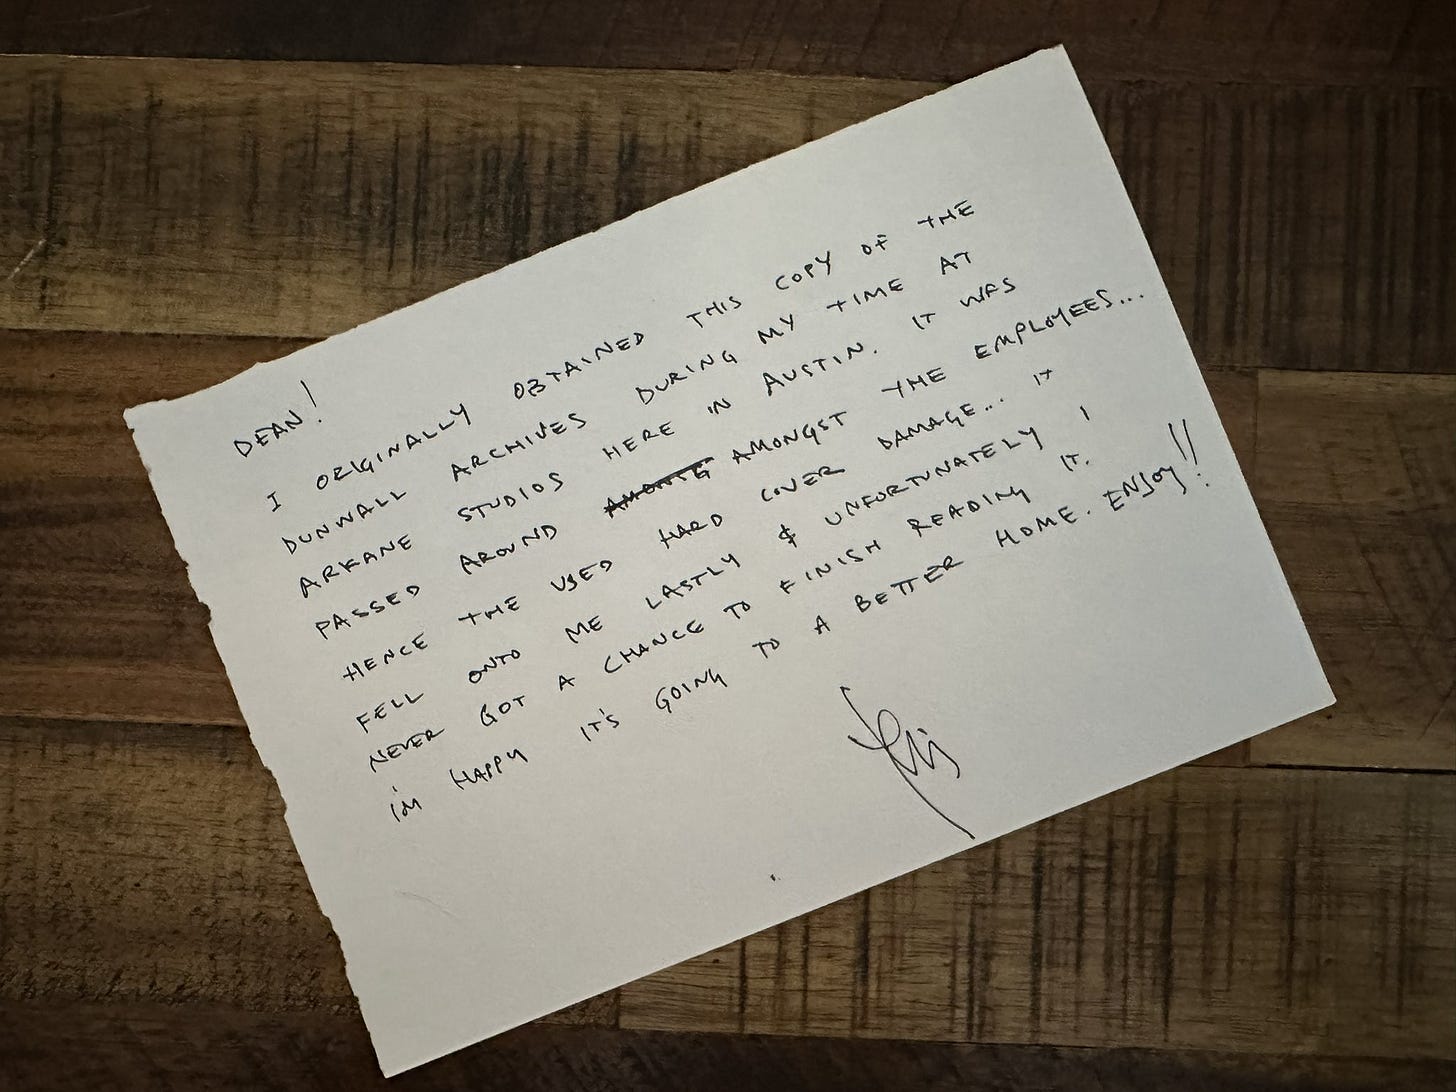 DEAN!
I ORIGINALLY OBTAINED THIS COPY OF THE
DUNWALL ARCHIVES DURING MY TIME AT
ARKANE STUDIOS HERE IN AUSTIN. IT WAS
PASSED AROUND AMONG AMONGST THE EMPLOYEES...
HENCE THE USED HARD COVER DAMAGE... IT
FELL ONTO ME LASTLY & UNFORTUNATELY I
NEVER GOT A CHANCE TO FINISH READING IT.
I'M HAPPY IT'S GOING TO A BETTER HOME. ENJOY!!